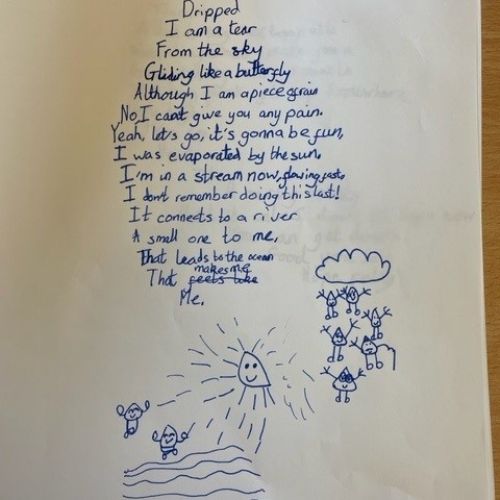 Dripped
I am a tear
From the sky
Gliding like a butterfly
Although I am a piece of rain
No I can't give you any pain.
Yeah, let's go, it's gonna be fun,
I was evaporated by the sun.
I'm in a stream now, flowing fast,
I don't remember doing this last!
It connects to a river
A small one to me,
That leads to the ocean
makes me
That feels like
Me.